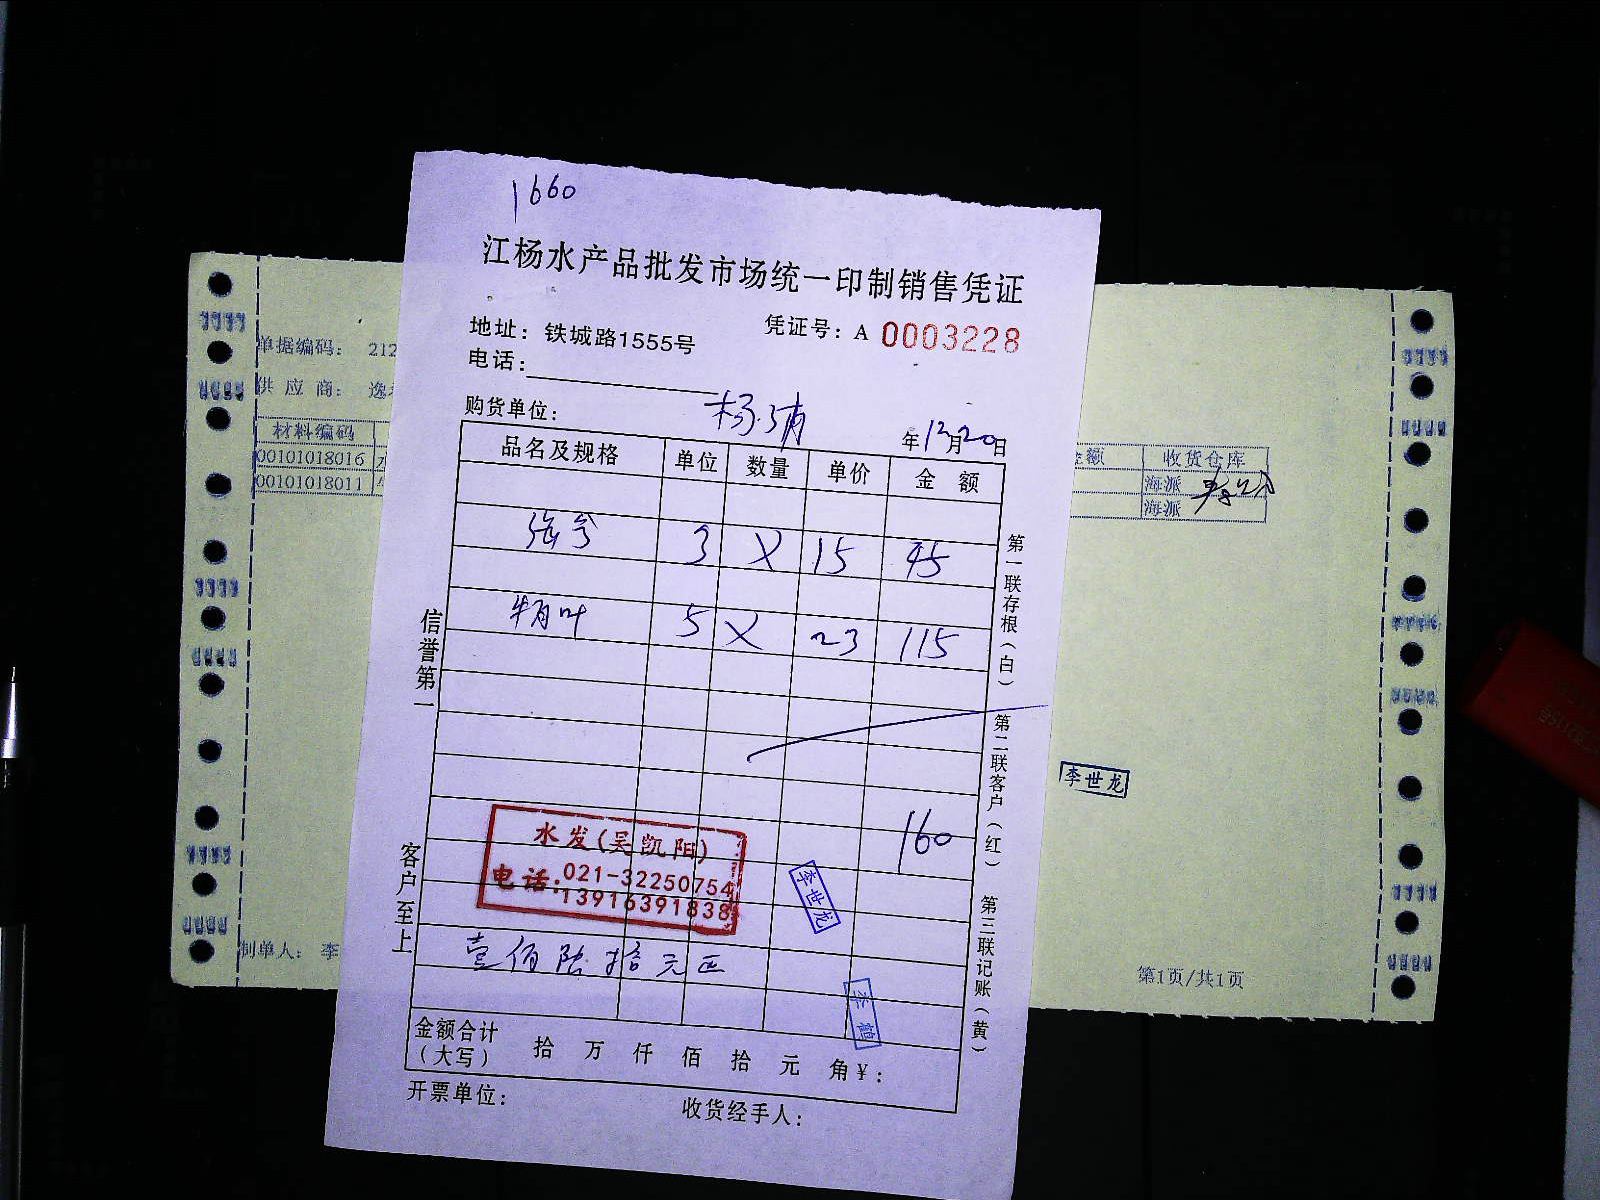 1660
江杨水产品批发市场统一印制销售凭证
地址：铁城路1555号
凭证号：A 0003228
电话：
购货单位：
年12月20日
品名及规格 单位 数量 单价 金额
3 X 15 45
5 X 23 115
160
水发(吴凯阳)
电话:021-32250754
13916391838
李世龙
壹佰陆拾元正
金额合计
（大写） 拾 万 仟 佰 拾 元 角 ¥：
开票单位：
收货经手人：
信誉第一
客户至上
第一联存根（白）
第二联客户（红）
第三联记账（黄）
单据编码： 212
供应商： 逸
材料编码
00101018016
00101018011
制单人： 李
金额 收货仓库
海派
海派
李世龙
第1页/共1页